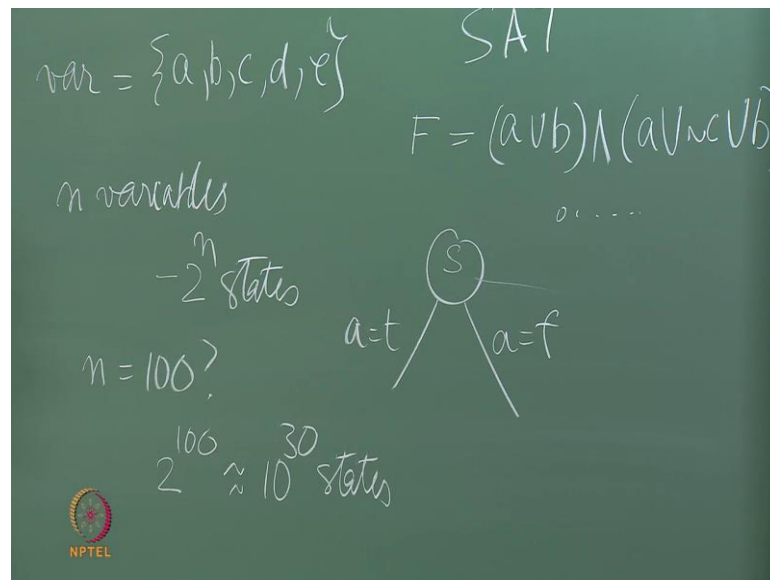 SAT
var = {a,b,c,d,e}
F = (a∪b)∧(a∪~c∪b
n variables
- 2^n states
S
a=t
a=f
n = 100?
2^100 ≈ 10^30 states
NPTEL